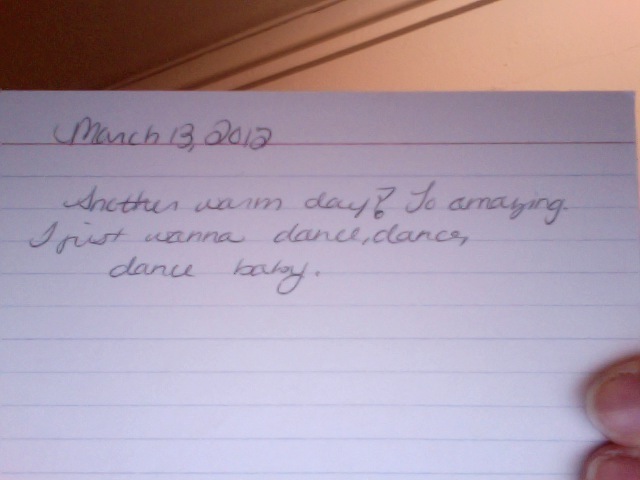 March 13, 2012
Another warm day? So amazing.
I just wanna dance, dance,
dance baby.